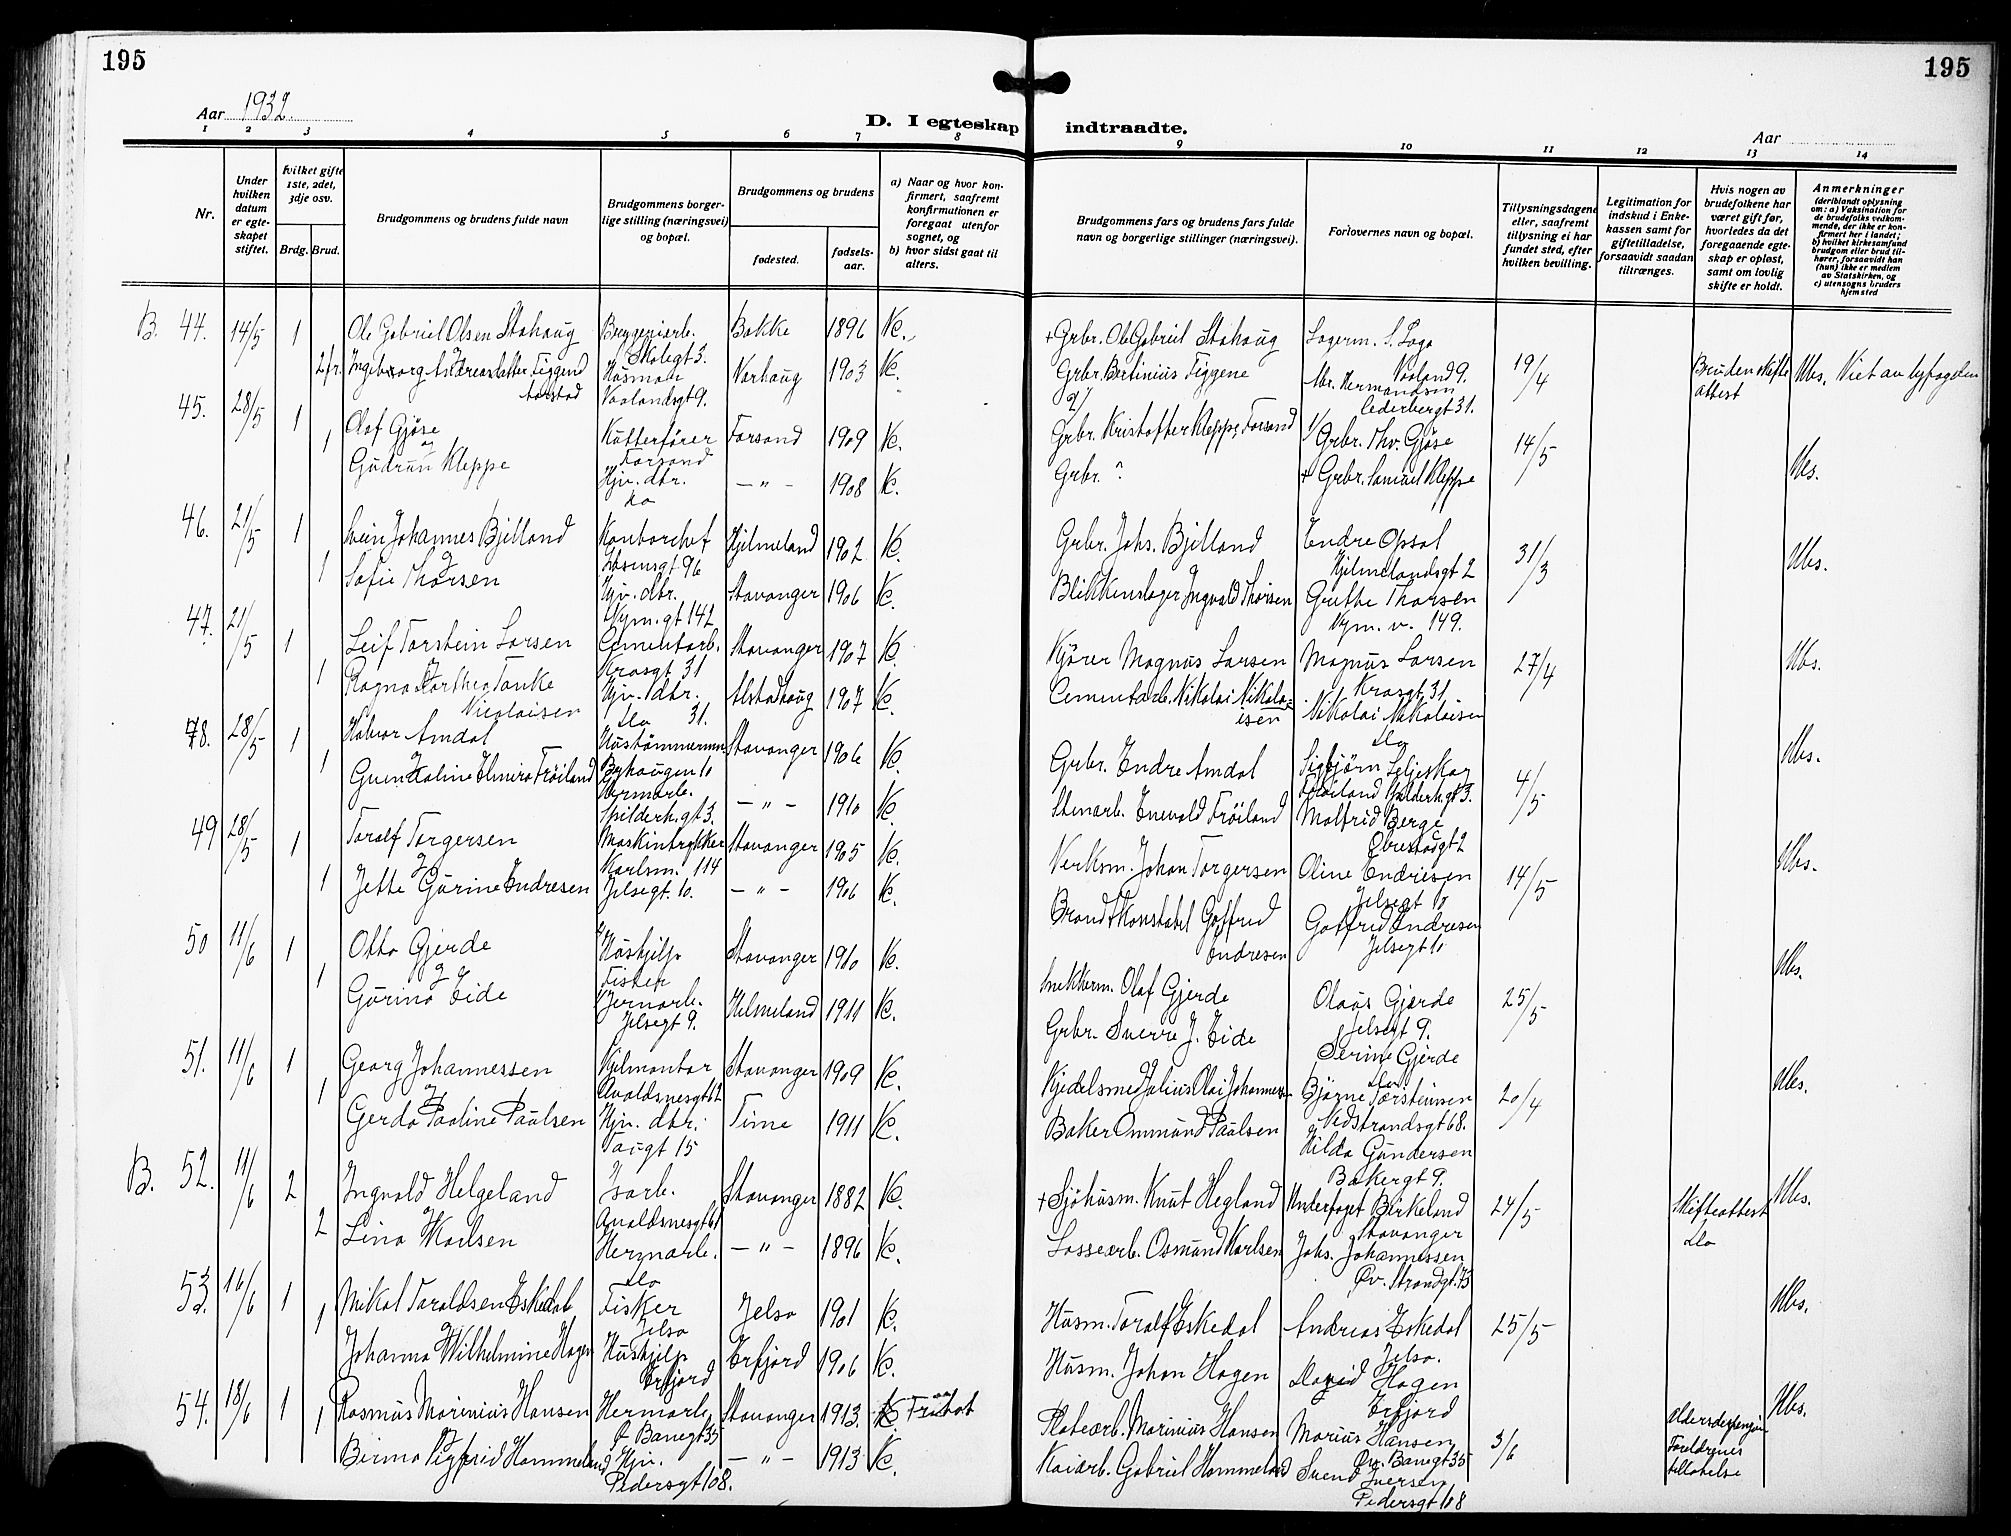 195
195
Aar 1932.
D. I egteskap indtraadte.
Aar
1 2 3 4 5 6 7 8 9 10 11 12 13 14
Nr.
Under hvilken datum er egteskapet stiftet.
hvilket gifte 1ste, 2det, 3dje osv.
Brdg. Brud.
Brudgommens og brudens fulde navn
Brudgommens borgerlige stilling (næringsvei) og bopæl.
Brudgommens og brudens
fødested.
fødselsaar.
a) Naar og hvor konfirmert, saafremt konfirmutionen er foregaat utenfor sognet, og
b) hvor sidst gaat til alters.
Brudgommens fars og brudens fars fulde navn og borgerlige stillinger (næringsvei).
Forlovernes navn og bopæl.
Tillysningsdagene eller, saafremt tillysning ei har fundet sted, efter hvilken bevilling.
Legitimation for indskud i Enkekassen samt for giftetilladelse, forsaavidt saadan tiltrænges.
Hvis nogen av brudefolkene har været gift før, hvorledes da det foregaaende egteskap er opløst, samt om lovlig skifte er holdt.
Anmerkninger
(deriblandt oplysning om: a) Vaksination for de brudefolks vedkommende, der ikke er konfirmert her i landet; b) hvilket kirkesamfund brudgom eller brud tilhører, forsaavidt han (hun) ikke er medlem av Statskirken, og c) utensogns bruders hjemsted
B. 44. 14/5 1 Ole Gabriel Olsen Stohaug Bryggeriarb. Skolegt 3. Bakke 1896 K. + Grbr. Ole Gabriel Stohaug Lagerm. S. Laga Vaaland 9.
2 fr. Ingeborg Andreasdatter Tiggend Husmor Vaalandsgt 9. Varhaug 1903 K. Grbr. Bertinius Tiggene Mr. Hermandsen Cederbergt 31. 19/4 Bruden skifte attest Ubs. Viet av byfogden
45. 28/5 1 Olaf Gjøse Kutterfører Forsand Forsand 1909 K. Grbr. Kristoffer Kleppe, Forsand Grbr. Thv. Gjøse 14/5
1 og Gudrun Kleppe Hjv. dtr. do — " — 1908 K. Grbr. ? + Grbr. Samuel Kleppe Ubs.
46. 21/5 1 Svein Johannes Bjelland Kontorchef 96 Hjelmeland 1902 K. Grbr. Johs. Bjelland Endre Opsal Hjelmelandsgt 2 31/3 Ubs.
1 Sofie Thorsen Hjv. dtr. Nym. gt 142 Stavanger 1906 K. Blikkenslager Ingvald Thorsen Grethe Thorsen Nym. v. 149.
47. 21/5 1 Leif Torstein Larsen Cementarb. Krosgt 31 Stavanger 1907 K. Kjører Magnus Larsen Magnus Larsen Krosgt. 31 27/4 Ubs.
1 Ragna Dorthea Tanke Nicolaisen Hjv. dtr. do 31. Alstadhaug 1907 K. Cementarb. Nikolai Nikolaisen Nikolai Nikolaisen do
48. 28/5 1 Halvor Amdal Hustømmermn Byhaugen 10 Stavanger 1906 K. Grbr. Endre Amdal Sigbjørn Seljeskog 4/5 Ubs.
1 Elmira Frøiland Hermarb. Spilderh. gt 3. — " — 1910 K. Stenarb. Enevald Frøiland Malfrid Berge
49 28/5 1 Toralf Torgersen Maskintrykker Karlsm. 114 Stavanger 1905 K. Verksm. Johan Torgersen Oline Endresen Jelsegt 10 14/5 Ubs.
1 Jette Gurine Endresen Jelsegt. 10. — " — 1906 K. Brandkonstabel Gotfred Endresen Gotfred Endresen Jelsegt 10
50 11/6 1 Otto Gjerde Stavanger 1910 K. Snekkerm. Olaf Gjerde Olaus Gjerde Jelsegt 9. 25/5 Ubs.
1 Gurina Eide Jelsegt 9. Helmeland 1911 K. Grbr. Sverre J. Eide Serine Gjerde do
51. 11/6 1 Georg Johannessen Avaldsnesgt 62 Stavanger 1909 K. Kjedelsmed Julius Olai Johannessen Bjarne Torsteinsen Nedstrandsgt 68. 20/4 Ubs.
1 Gerda Pauline Paulsen Hjv. dtr. Taugt 15 Time 1911 K. Baker Ommund Paulsen Hilda Gundersen Bakergt 9.
B. 52. 11/6 2 Ingvald Helgeland Isarb. Avaldsnesgt 61 Stavanger 1882 K. + Sjøhusm. Knut Hegland Underfoget Birkeland Stavanger 24/5 Skifteattest Ubs.
2 Lina Karlsen Hermarb. do — " — 1896 K. Lossearb. Osmund Karlsen Johs. Johannessen Øv. Strandgt. 73 do
53. 16/6 1 Mikal Taraldsen Eskedal Fisker Jelsa Jelsa 1901 K. Husm. Toralf Eskedal Andreas Eskedal Jelsa. 25/5 Ubs.
1 Johanna Wilhelmine Hagen Hushjelp Erfjord Erfjord 1906 K. Husm. Johan Hagen David Hagen Erfjord
54. 18/6 1 Rasmus Marinius Hansen Hermarb. Ø Banegt 35 Stavanger 1913. K. Platearb. Marinius Hansen Marius Hansen Øv. Banegt 35 3/6 Aldersdispensasjon Ubs.
1 Birma Sigfrid Hommeland Hjv. Pedersgt 108. — " — 1913 K. Kaiarb. Gabriel Hommeland Svend Iversen Pedersgt 108 Foreldrenes tillatelse